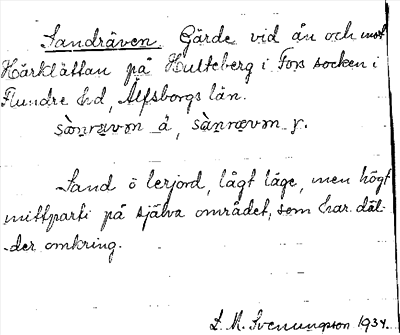 Sandräven. Gärde vid ån och mot
Härklättan på Hulteberg i Fors socken i
Flundre hd, Älfsborgs län.
sànrævm ä, sànrævm y.
Sand ö lerjord, lågt läge, men högt
mittparti på själva området, som har däl-
-der omkring.
L. M. Svenungsson 1934.